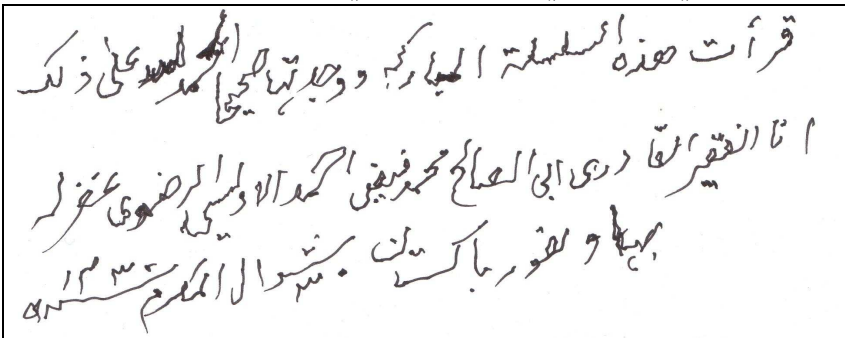 قرأت هذه السلسلة المباركه ووجدتها صحيحا الحمد لله على ذلك
انا الفقير القادري ابي الصالح محمد فيض احمد الاويسي الرضوي غفرله
بهاولفور باكستان شوال المكرم ١٤٣٠ه